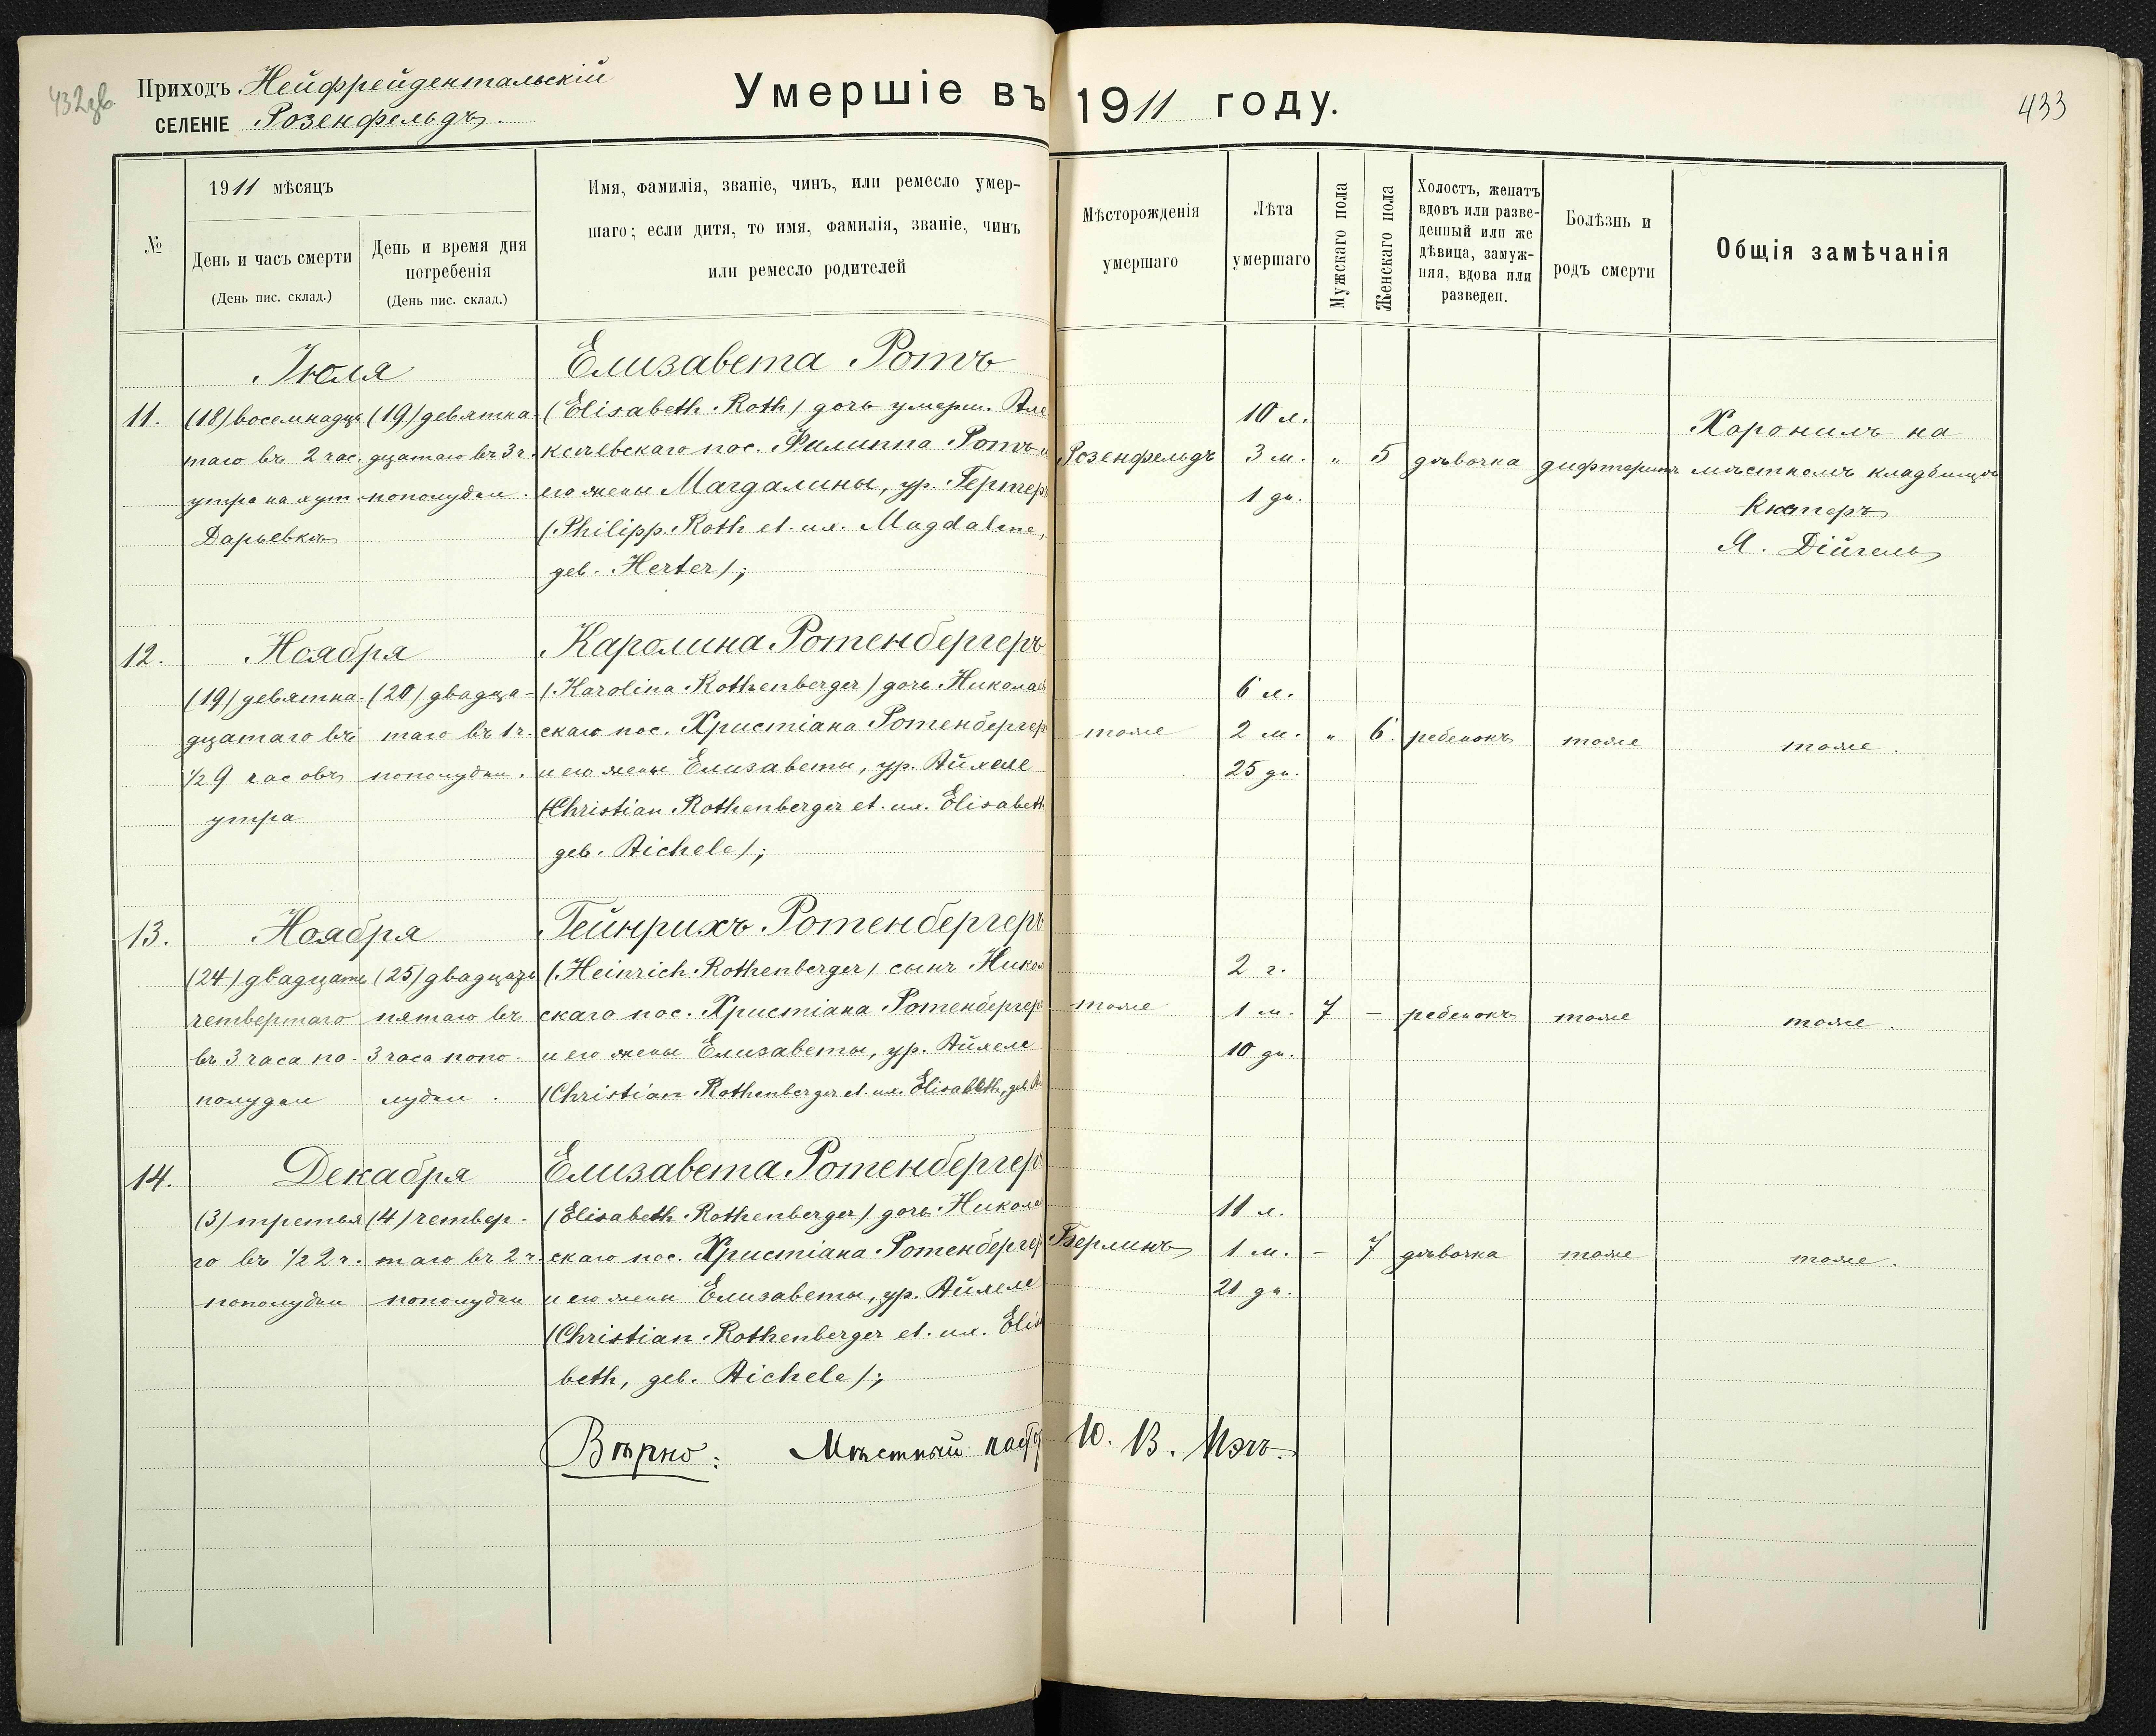 432 зв.
Приходъ Нейфрейдентальскій
СЕЛЕНІЕ Розенфельдъ.
Умершіе въ 1911 году.
433
№
1911 мѣсяцъ
День и часъ смерти
(День пис. склад.)
День и время дня
погребенія
(День пис. склад.)
Имя, фамилія, званіе, чинъ, или ремесло умер-
шаго; если дитя, то имя, фамилія, званіе, чинъ
или ремесло родителей
Мѣсторожденія
умершаго
Лѣта
умершаго
Мужскаго пола
Женскаго пола
Холостъ, женатъ
вдовъ или разве-
денный или же
дѣвица, замуж-
няя, вдова или
разведен.
Болѣзнь и
родъ смерти
Общія замѣчанія
11.
Іюля
(18) восемнадца
таго въ 2 час.
утра на хут.
Дарьевкѣ
(19) девятна-
дцатаго въ 3 ч.
пополудни.
Елизавета Ротъ
(Elisabeth Roth) дочь умерш. Але
ксѣевскаго пос. Филиппа Ротъ и
его жены Магдалины, ур. Гертеръ
(Philipp Roth et. ux. Magdalene,
geb. Herter);
Розенфельдъ
10 л.
3 м.
1 дн.
"
5
дѣвочка
дифтеритъ
Хоронилъ на
мѣстномъ кладбищѣ
Кистеръ
Я. Дійгель
12.
Ноября
(19) девятна-
дцатаго въ
1/2 9 часовъ
утра
(20) двадца-
таго въ 1 ч.
пополудни.
Каролина Ротенбергеръ
(Karolina Rothenberger) дочь Николаев
скаго пос. Христіана Ротенбергеръ
и его жены Елизаветы, ур. Айхеле
(Christian Rothenberger et. ux. Elisabeth
geb. Aichele);
тоже
6 л.
2 м.
25 дн.
"
6.
ребенокъ
тоже
тоже.
13.
Ноября
(24) двадцать
четвертаго
въ 3 часа по-
полудни
(25) двадцать
пятаго въ
3 часа попо-
лудни.
Гейнрихъ Ротенбергеръ
(Heinrich Rothenberger) сынъ Никол
скаго пос. Христіана Ротенбергер
и его жены Елизаветы, ур. Айхеле
(Christian Rothenberger et. ux. Elisabeth, geb. A
тоже
2 г.
1 м.
10 дн.
7
–
ребенокъ
тоже
тоже.
14.
Декабря
(3) третья
го въ 1/2 2 ч.
пополудни
(4) четвер-
таго въ 2 ч.
пополудни
Елизавета Ротенбергер
(Elisabeth Rothenberger) дочь Никола
скаго пос. Христіана Ротенбергер
и его жены Елизаветы, ур. Айхеле
(Christian Rothenberger et. ux. Elis
beth, geb. Aichele);
Берлинъ
11 л.
1 м.
21 дн.
–
7
дѣвочка
тоже
тоже.
Вѣрно: Мѣстный пастор Ю. В. Мэгъ.